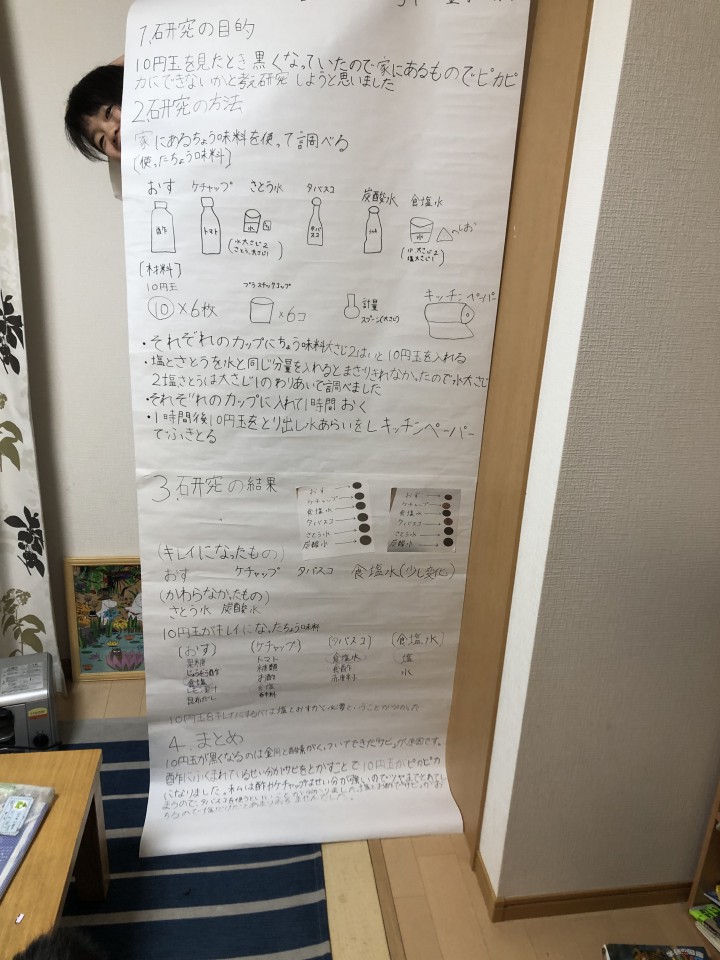 1.研究の目的
10円玉を見たとき黒くなっていたので家にあるものでピカピ
カにできないかと考え研究しようと思いました
2.研究の方法
家にあるちょう味料を使って調べる
[使ったちょう味料]
おす ケチャップ さとう水 タバスコ 炭酸水 食塩水
酢 トマト 水 タバスコ 水 しお
(水大さじ2 さとう大さじ1) (水大さじ2 塩大さじ1)
[材料]
10円玉 プラスチックコップ 計量スプーン(大さじ) キッチンペーパー
⑩×6枚 ×6コ
・それぞれのカップにちょう味料大さじ2はいと10円玉を入れる
・塩とさとうを水と同じ分量を入れるとまざりきれなかったので水大さじ
2塩さとうは大さじ1のわりあいで調べました
・それぞれのカップに入れて1時間おく
・1時間後10円玉をとり出し水あらいをしキッチンペーパー
でふきとる
3.研究の結果
おす
ケチャップ
食塩水
タバスコ
さとう水
炭酸水
おす
ケチャップ
食塩水
タバスコ
さとう水
炭酸水
(キレイになったもの)
おす ケチャップ タバスコ 食塩水(少し変化)
(かわらなかったもの)
さとう水 炭酸水
10円玉がキレイになったちょう味料
(おす) (ケチャップ) (タバスコ) (食塩水)
果糖 トマト 食塩水 塩
じょうぞう酢 糖類 食酢 水
食塩 お酢
昆布だし 食塩
香辛料
10円玉をキレイにするには塩とおすが必要ということが分かった
4.まとめ
10円玉が黒くなるのは金同と酸素がくっついてできた「サビ」が原因です。
酢にふくまれているせい分がサビをとかすことで10円玉がピカピカ
になりました。